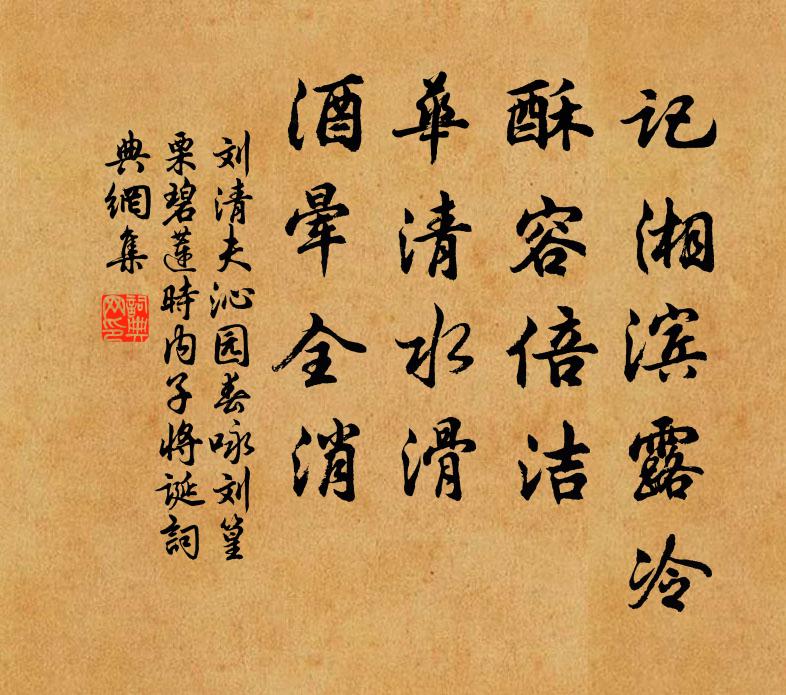 记湘滨露冷
酥容倍洁
華清水滑
酒晕全消
刘清夫沁园春咏刘篁
栗碧莲時内子将诞詞
典網集
詞典
网印